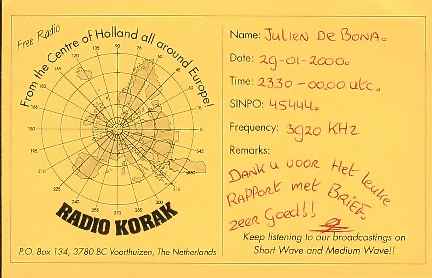 Free Radio
From the Centre of Holland all around Europe!
RADIO KORAK
P.O. Box 134, 3780 BC Voorthuizen, The Netherlands
Name: Julien De Bona.
Date: 29-01-2000.
Time: 23.30-00.00 utc.
SINPO: 45444.
Frequency: 3920 KHz
Remarks:
DANK U VOOR Het leuke
RAPPORT met BRIEF.
zeer Goed!!
Keep listening to our broadcastings on
Short Wave and Medium Wave!!